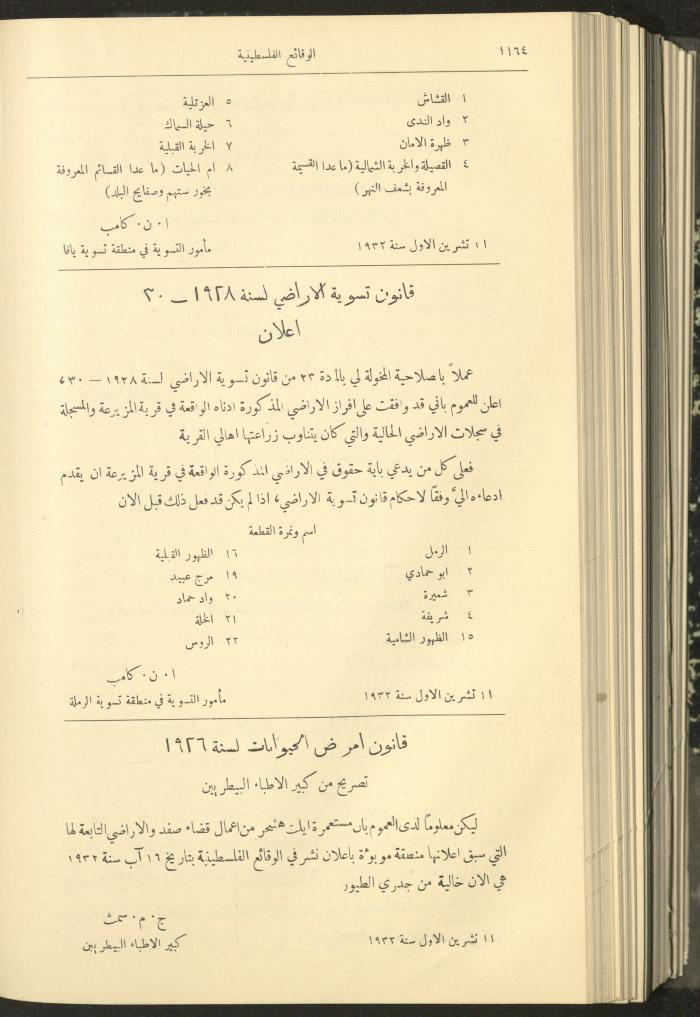 ١١٦٤
الوقائع الفلسطينية
١ القشاش
٢ واد الندى
٣ ظهرة الامان
٤ القصيلة والخربة الشمالية (ما عدا القسيمة
المعروفة بشعف النهر)
٥ العزتلية
٦ حيلة السماك
٧ الخربة القبلية
٨ ام الحيات (ما عدا القسائم المعروفة
بخور ستهم وصفايح البلد)
ا٠ ن٠ كامب
١١ تشرين الاول سنة ١٩٣٢
مأمور التسوية في منطقة تسوية يافا
قانون تسوية الاراضي لسنة ١٩٢٨ — ٣٠
اعلان
عملاً باصلاحية المخولة لي بالمادة ٢٣ من قانون تسوية الاراضي لسنة ١٩٢٨ — ٣٠،
اعلن للعموم باني قد وافقت على افراز الاراضي المذكورة ادناه الواقعة في قرية المزيرعة والمسجلة
في سجلات الاراضي الحالية والتي كان يتناوب زراعتها اهالي القرية
فعلى كل من يدعي باية حقوق في الاراضي المذكورة الواقعة في قرية المزيرعة ان يقدم
ادعاءه اليَّ وفقاً لاحكام قانون تسوية الاراضي، اذا لم يكن قد فعل ذلك قبل الان
اسم ونمرة القطعة
١ الرمل
٢ ابو حمادي
٣ شعيرة
٤ شريفة
١٥ الظهور الشامية
١٦ الظهور القبلية
١٩ مرج عبيد
٢٠ واد حماد
٢١ الخلة
٢٢ الروس
ا٠ ن٠ كامب
١١ تشرين الاول سنة ١٩٣٢
مأمور التسوية في منطقة تسوية الرملة
قانون امراض الحيوانات لسنة ١٩٢٦
تصريح من كبير الاطباء البيطريين
ليكن معلوماً لدى العموم بان مستعمرة ايلت هشحر من اعمال قضاء صفد والاراضي التابعة لها
التي سبق اعلانها منطقة موبوءة باعلان نشر في الوقائع الفلسطينية بتاريخ ١٦ آب سنة ١٩٣٢
هي الان خالية من جدري الطيور
ج٠ م٠ سمث
١١ تشرين الاول سنة ١٩٣٢
كبير الاطباء البيطريين